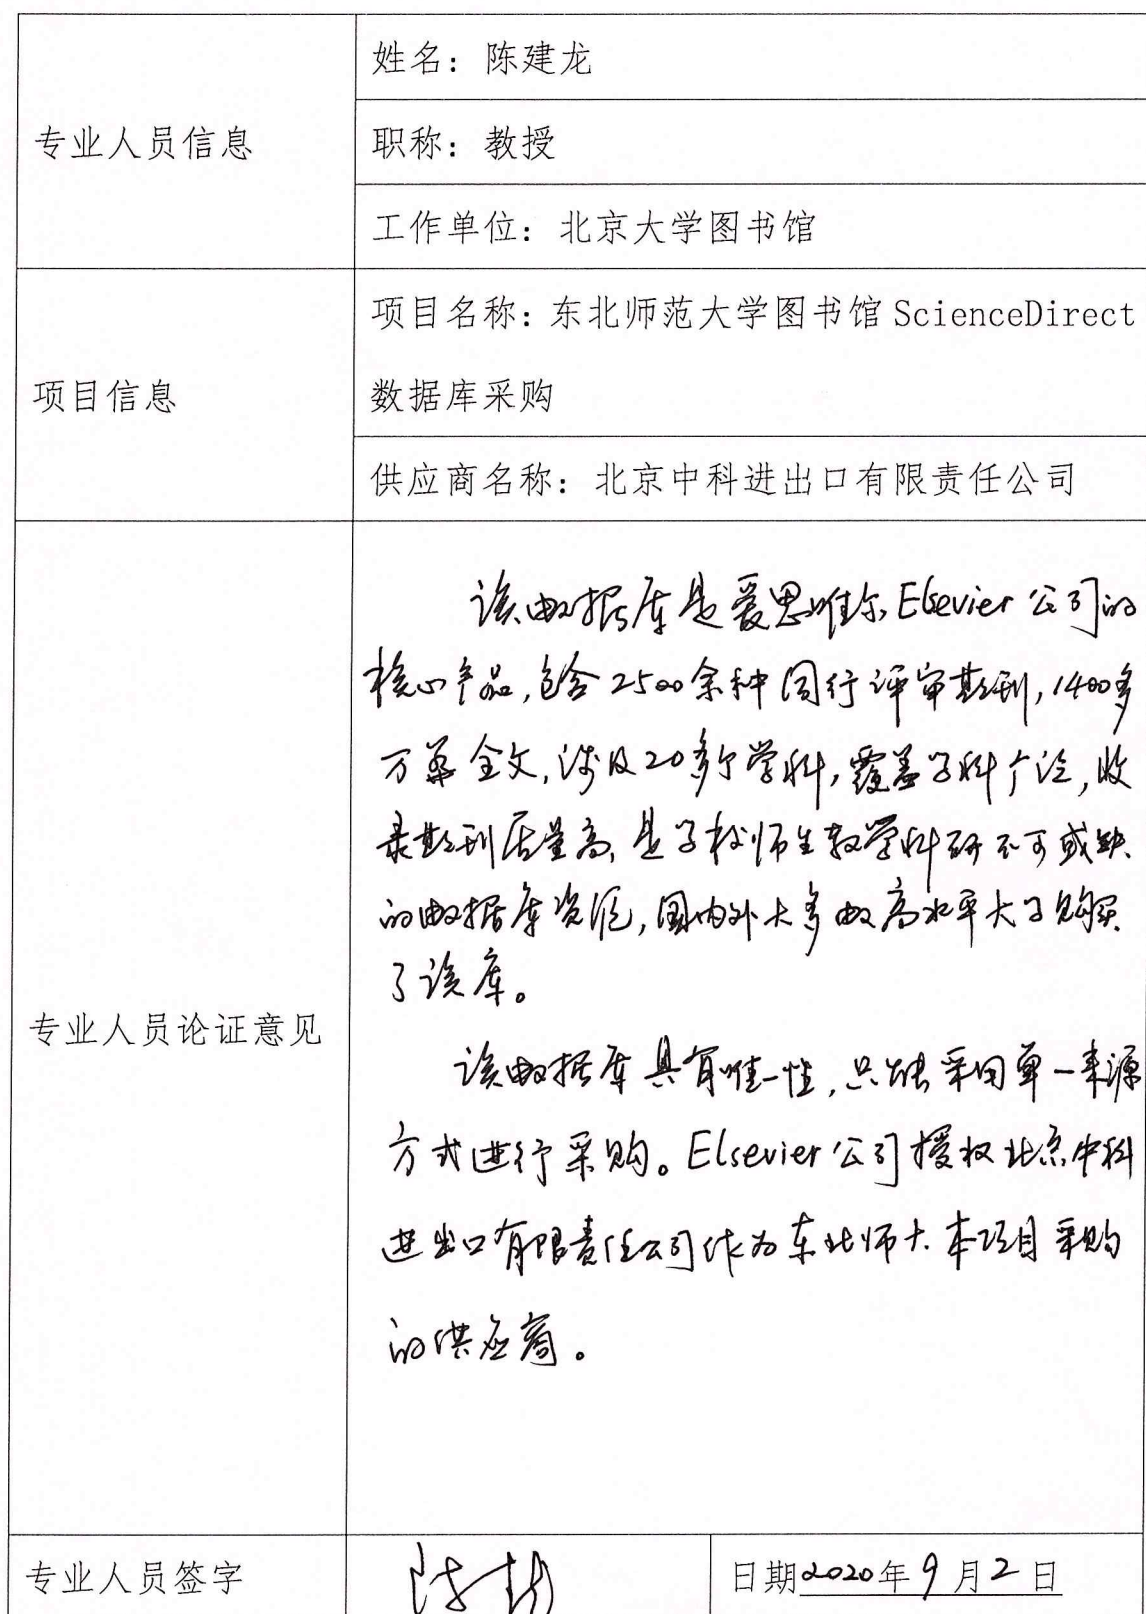 专业人员信息
姓名：陈建龙
职称：教授
工作单位：北京大学图书馆
项目信息
项目名称：东北师范大学图书馆 ScienceDirect
数据库采购
供应商名称：北京中科进出口有限责任公司
专业人员论证意见
该数据库是爱思唯尔Elsevier公司的
核心产品,包含2500余种同行评审期刊,1400多
万篇全文,涉及20多个学科,覆盖学科广泛,收
录期刊质量高,是学校师生教学科研不可或缺
的数据库资源,国内外大多数高水平大学购买
了该库。
该数据库具有唯一性,只能采用单一来源
方式进行采购。Elsevier公司授权北京中科
进出口有限责任公司作为东北师大本项目采购
的供应商。
专业人员签字
日期2020年9月2日